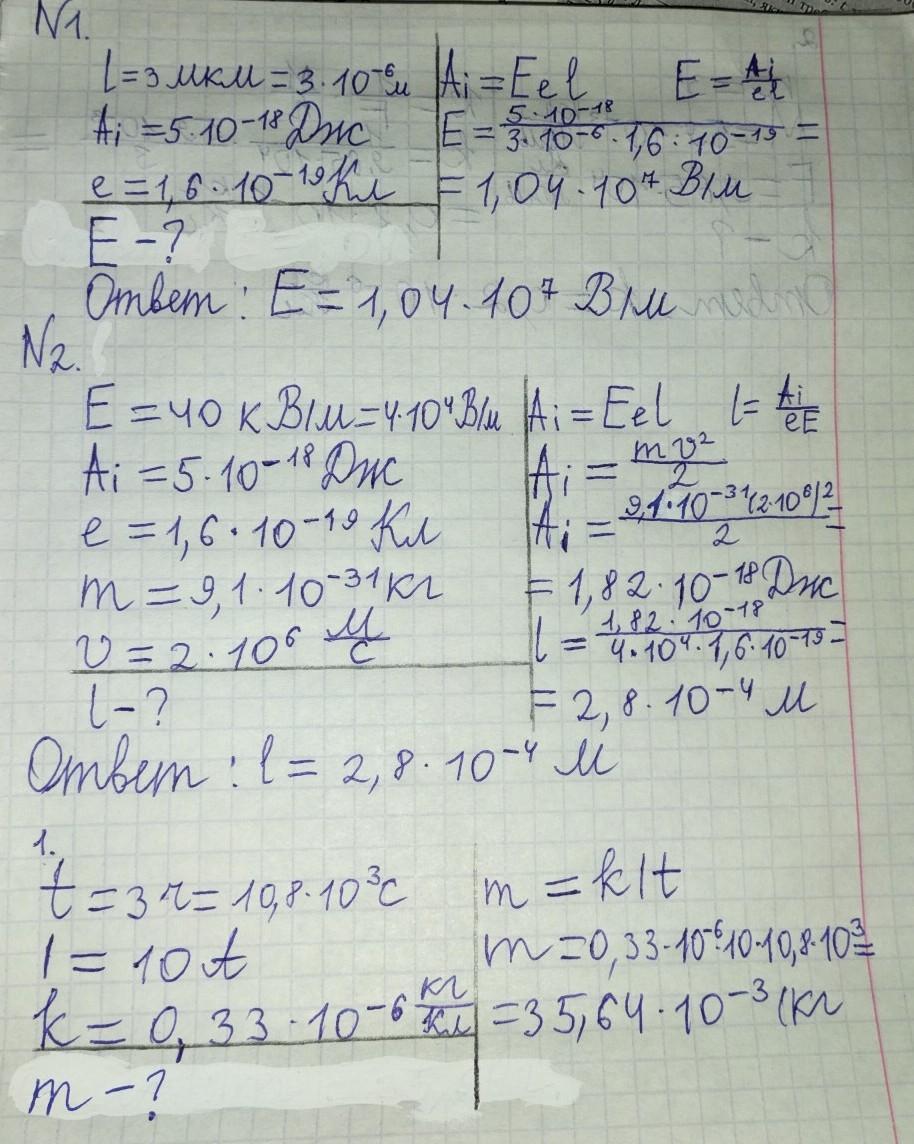 N1.
l = 3 мкм = 3·10⁻⁶ м
Aᵢ = 5·10⁻¹⁸ Дж
e = 1,6·10⁻¹⁹ Кл
E – ?
Aᵢ = Eel E = Aᵢ/el
E = 5·10⁻¹⁸/3·10⁻⁶·1,6·10⁻¹⁹ =
= 1,04·10⁷ В/м
Ответ: E = 1,04·10⁷ В/м
N2.
E = 40 кВ/м = 4·10⁴ В/м
Aᵢ = 5·10⁻¹⁸ Дж
e = 1,6·10⁻¹⁹ Кл
m = 9,1·10⁻³¹ кг
v = 2·10⁶ м/с
l – ?
Aᵢ = Eel l = Aᵢ/eE
Aᵢ = mv²/2
Aᵢ = 9,1·10⁻³¹(2·10⁶)²/2 =
= 1,82·10⁻¹⁸ Дж
l = 1,82·10⁻¹⁸/4·10⁴·1,6·10⁻¹⁹ =
= 2,8·10⁻⁴ м
Ответ: l = 2,8·10⁻⁴ м
1.
t = 3 ч = 10,8·10³ с
I = 10 A
k = 0,33·10⁻⁶ кг/Кл
m – ?
m = kIt
m = 0,33·10⁻⁶·10·10,8·10³ =
= 35,64·10⁻³ (кг